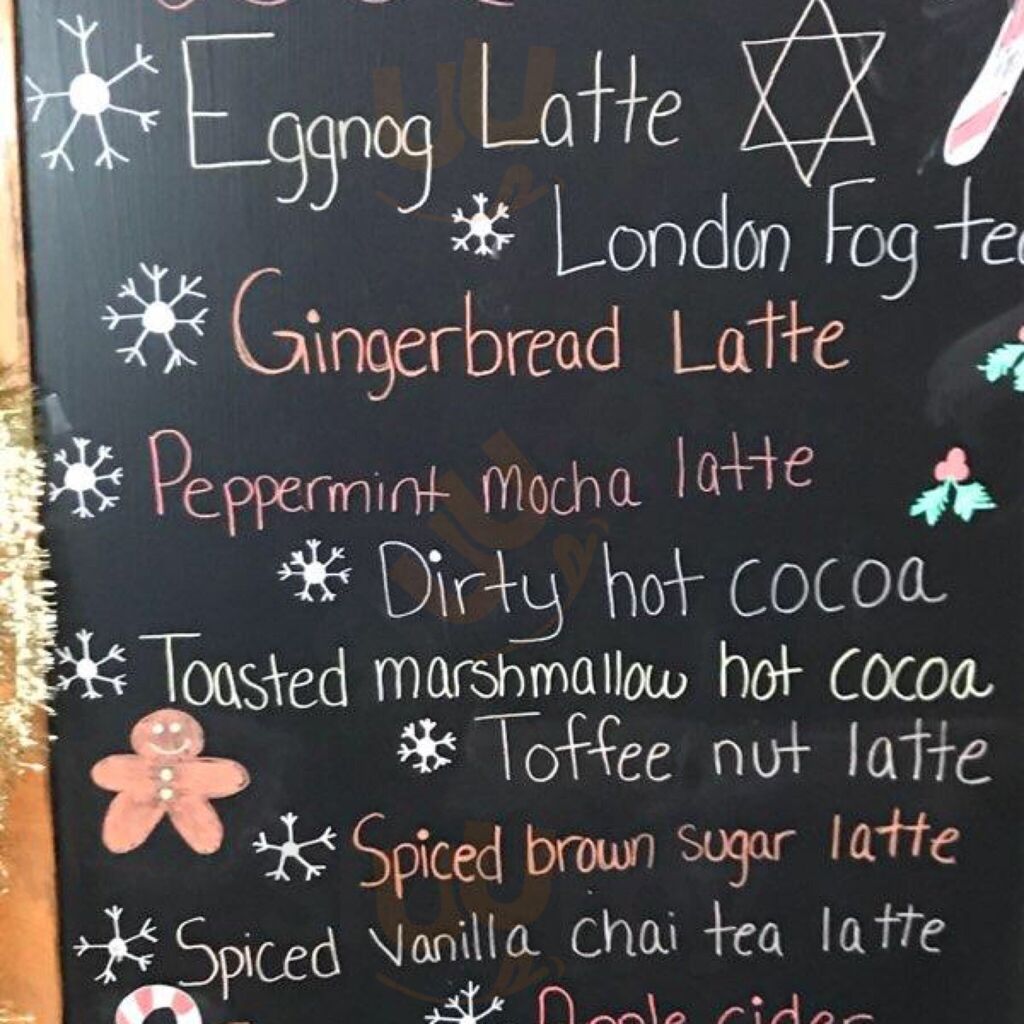 Eggnog Latte
London Fog tea
Gingerbread Latte
Peppermint mocha latte
Dirty hot cocoa
Toasted marshmallow hot cocoa
Toffee nut latte
Spiced brown sugar latte
Spiced Vanilla chai tea latte
Apple cider